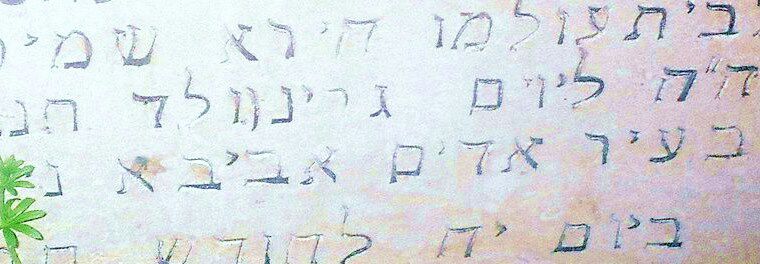 לבית עולמו הירא שמי
ה"ה ליוים גרינוולד
בעיר אדים אביבא
ביום יח לחודש